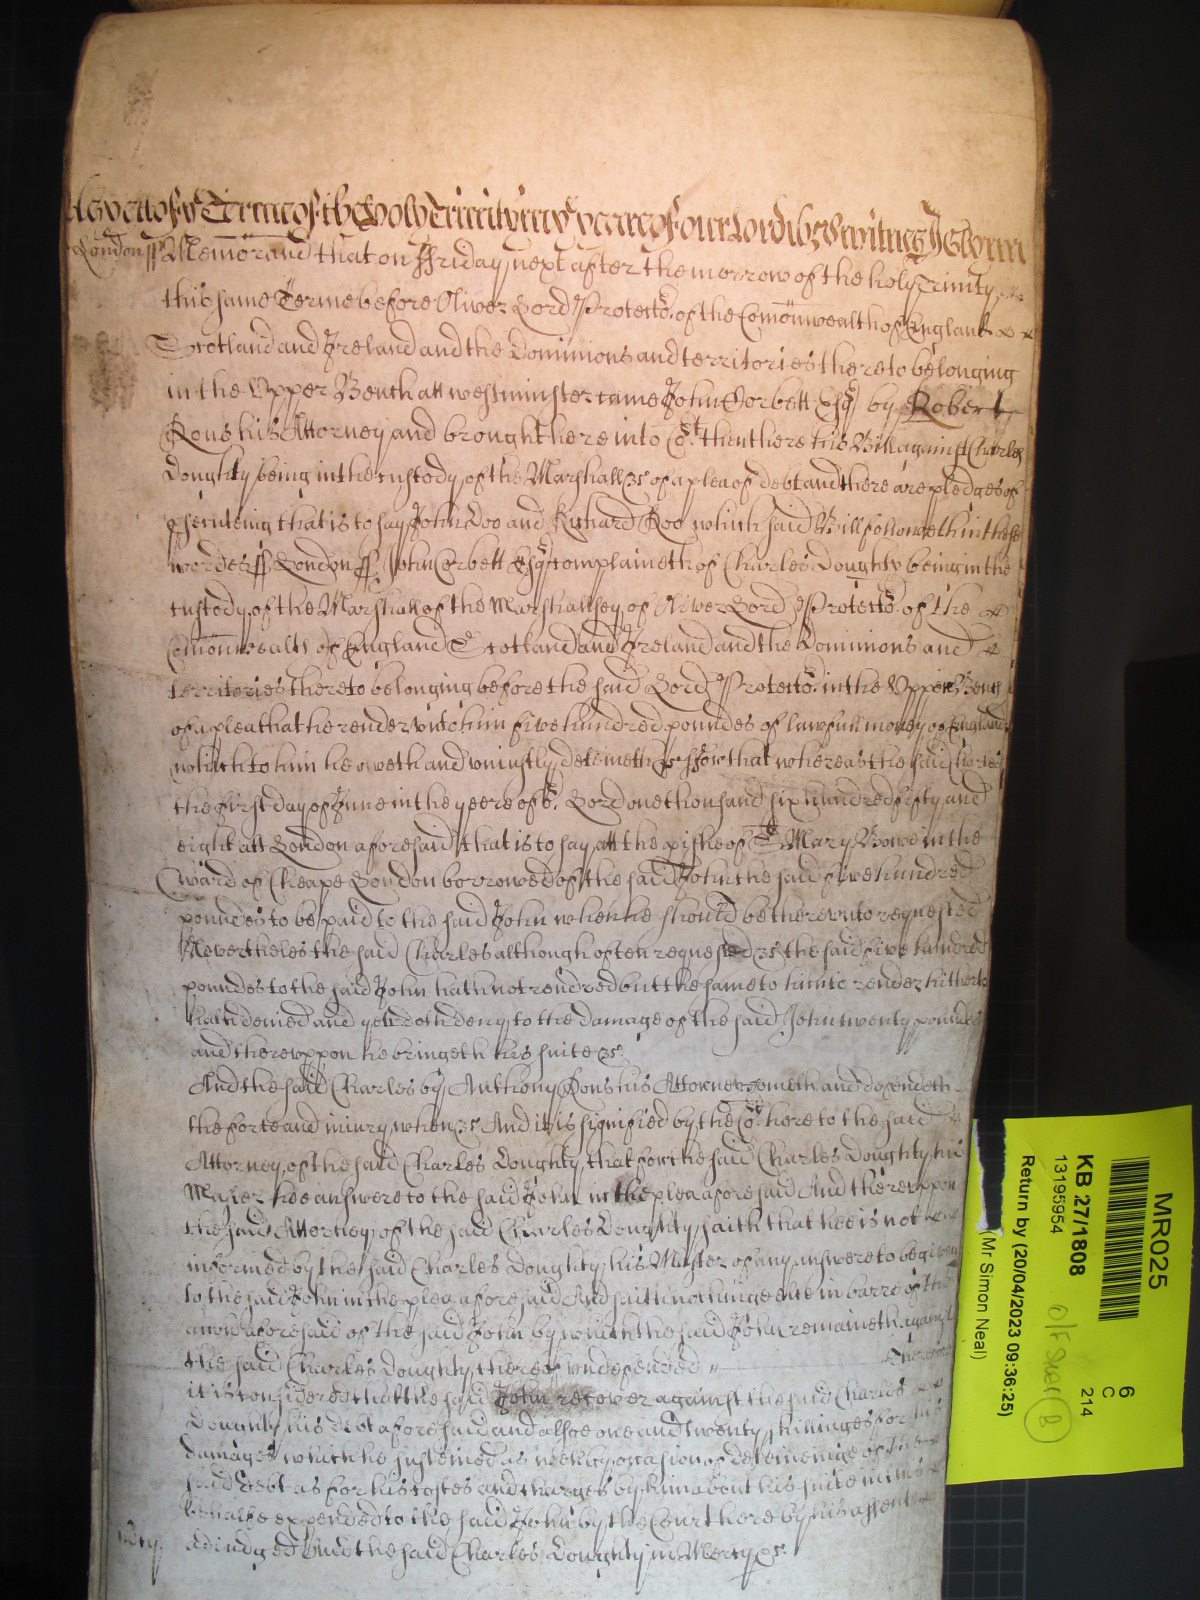 As yett of ye Terme of the Holy Trinity in ye yeare of our Lord 1658 witnes
London ss Memorand that on Ffriday next after the morrow of the holy Trinity
this same Terme before Oliver Lord Protector of the Comonwealth of England
Scotland and Ireland and the Dominions and territories thereto belonging
in the Upper Bench att westminster came John Corbett Esqr by Robert
his Attorney and brought here into Cort then there his Bill against Charles
Doughty being in the custody of the Marshall &c of a plea of debt and there are pledges of
psecuteing that is to say John Doo and Richard Roo which said Bill followeth in these
wordes ss London ss John Corbett Esqr complaineth of Charles Doughty being in the
custody of the Marshall of the Marshallsey of Oliver Lord Protector of the
Comonwealth of England Scotland and Ireland and the Dominions and
territories thereto belonging before the said Lord Protector in the Upper Bench
of a plea that he render unto him five hundred poundes of lawfull money of England
which to him he oweth and uniustly deteineth For that whereas the said Charles
the first day of June in the yeere of or Lord one thousand six hundred fifty and
eight att London aforesaid that is to say att the pishe of St Mary Bowe in the
Ward of Cheape London borrowed of the said John the said five hundred
poundes to be paid to the said John when he should be thereunto requested
Nevertheles the said Charles although often requested &c the said five hundred
poundes to the said John hath not rendred but the same to him to render hitherto
hath denied and yet doth deny to the damage of the said John twenty poundes
and thereuppon he bringeth his suite &c
And the said Charles by Anthony his Attorney cometh and defendeth
the force and iniury when &c And it is signified by the Cort here to the said
Attorney of the said Charles Doughty that for the said Charles Doughty his
Master hee answere to the said John in the plea aforesaid And thereuppon
the said Attorney of the said Charles Doughty saith that hee is not
informed by the said Charles Doughty his Master of any answere to be given
to the said John in the plea aforesaid And saith nothinge else in barre of the
accon aforesaid of the said John by which the said John remaineth against
the said Charles Doughty thereof undefended Therefore
it is considered that the said John recover against the said Charles
Doughty his debt aforesaid and alsoe one and twenty shillinges for his
damages which he susteined as well by occasion of deteineinge of the
said debt as for his costes and charges by him about his suite in this
behalfe expended to the said John by the Court here by his assent
mercy adiudged And the said Charles Doughty in Mercy &c
MR025
6
C
214
KB 27/1808
13195954
Return by (20/04/2023 09:36:25)
(Mr Simon Neal)
B